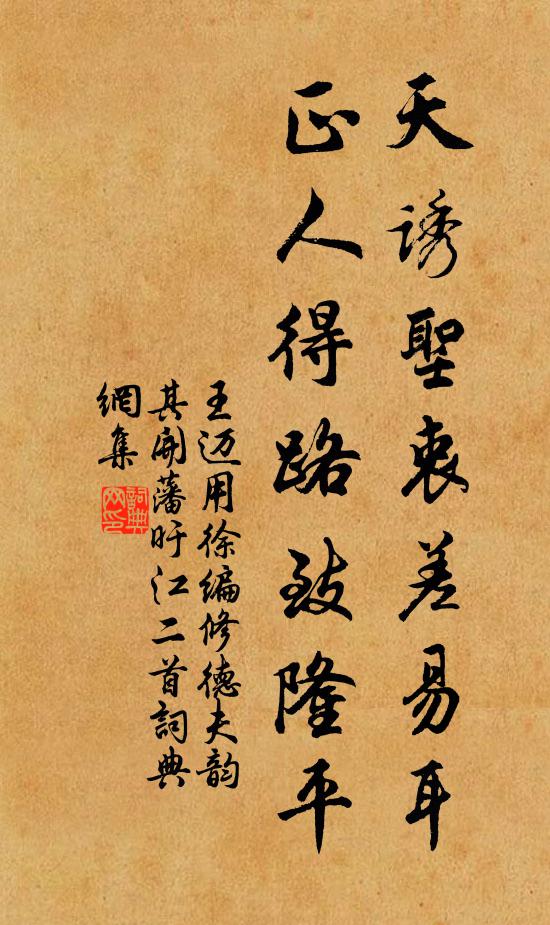 天誘聖衷差易耳
正人得路致隆平
王迈用徐编修德夫韵
其開藩盱江二首詞典
網集
詞典网印